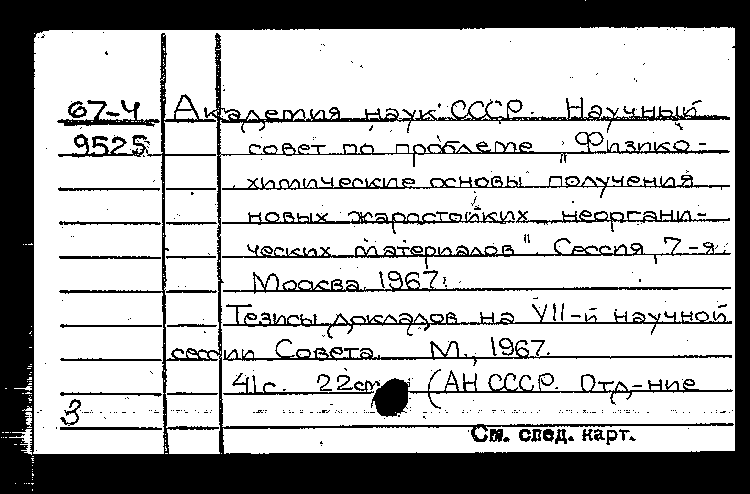 67-4 Академия наук СССР. Научный
9525 совет по проблеме „Физико-
химические основы получения
новых жаростойких неоргани-
ческих материалов". Сессия, 7-я.
Москва. 1967.
Тезисы докладов на VII-й научной
сессии Совета. М., 1967.
41с. 22см (АН СССР. Отд-ние
З
См. след. карт.